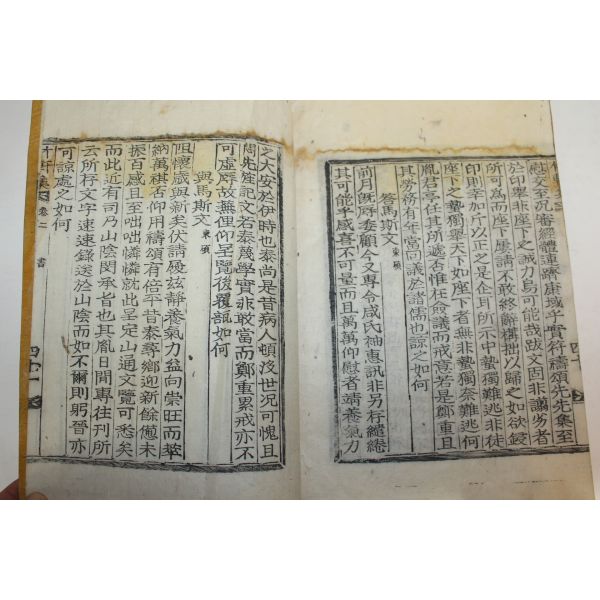 慰交至況審經體連躋康域乎實符禱頌先先集至
於印舉非座下之誠力易可能哉跋文固非謭劣者
所可爲而座下屢請不敢終辭構拙以歸之如欲鋟
印則宰加斤以正之是企耳所示中蟄獨難逃非徒
座下之蟄獨擧天下如座下者無非蟄獨奈難逃何
胤君亭任其所遞否惟在僉議而戒意若是鄭重且
其勞務有年當回議於諸儒也諒之如何
答馬斯文 東碩
前月旣辱委顧今又專令咸氏袖惠訊非另存繾綣
其可能乎感喜不可量而且萬萬仰慰者靖養氣力
之大安於伊時也泰尚是昔病人頓沒世況可愧且
尚先筵記文若泰蔑學實非敢當而鄭重累戒亦不
可虛辱故蕪俚仰呈覽後覆瓿如何
與馬斯文 東碩
阻懷歲與新矣伏請履玆靜養氣力益向崇旺而葉
納萬祺否仰用禱頌有倍平昔泰壽鄉迎新餘憊未
振百感且至咄咄憐憐就此呈定山通文覽可悉矣
而此近有司乃山陰閔承旨也其胤日間專往刊所
云所存文字速速錄送於山陰而如不爾則躬晉亦
可諒處之如何
集 卷二 書